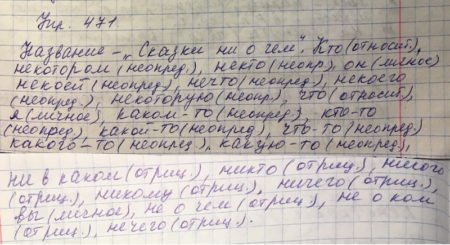 Упр. 471
Название – „Сказки ни о чем". Кто (относит),
некотором (неопред.), некто (неопр), он (личное)
некоей (неопред), нечто (неопред), некоего
(неопред.), некоторую (неопр), что (относит),
я (личное), каком-то (неопред), кто-то
(неопред), какой-то (неопред), что-то (неопред)
какого-то (неопред), какую-то (неопред),
ни в каком (отриц.), никто (отриц.), никого
(отриц.), никому (отриц.), ничего (отриц.),
вы (личное), не о чем (отриц.), не о ком
(отриц.), нечего (отриц.).